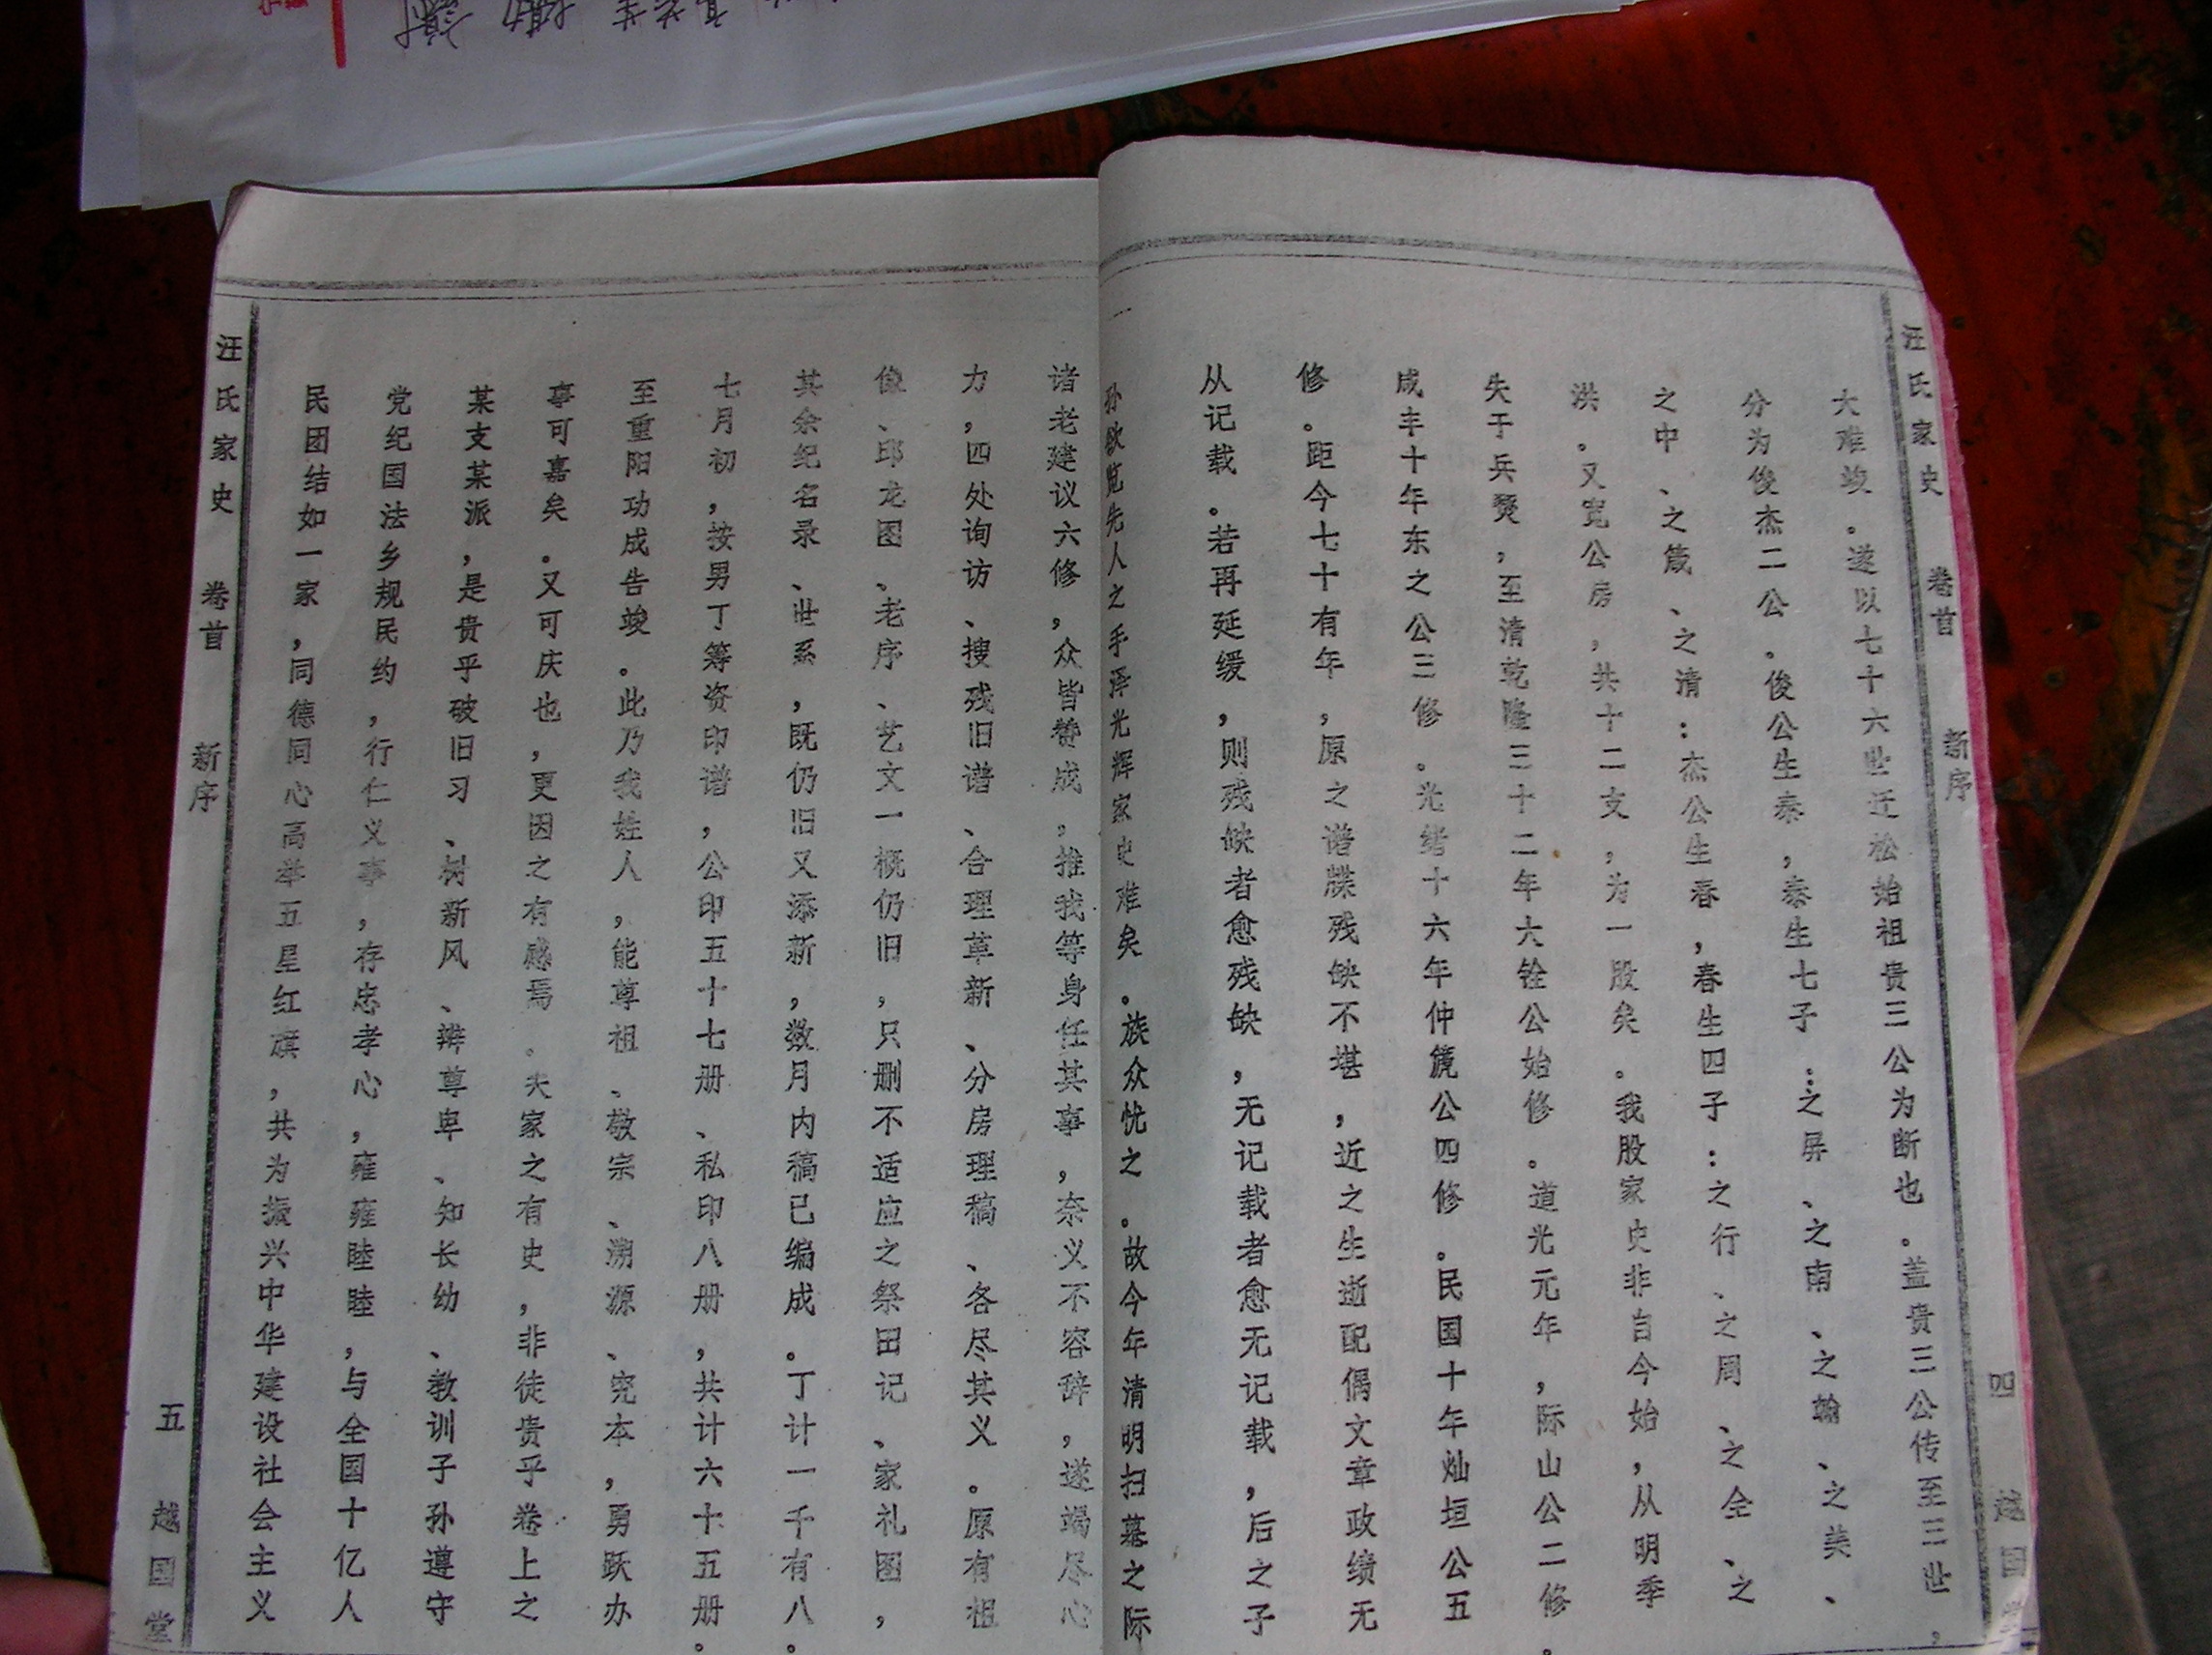 汪氏家史 卷首 新序 四 越国
大难竣。遂以七十六世迁松始祖贵三公为断也。盖贵三公传至三世，
分为俊杰二公。俊公生泰，泰生七子：之屏、之南、之翰、之美、
之中、之箴、之清：杰公生春，春生四子：之行、之周、之全、之
洪。又宽公房，共十二支，为一股矣。我股家史非自今始，从明季
失于兵燹，至清乾隆三十二年大铨公始修。道光元年，际山公二修。
咸丰十年东之公三修。光绪十六年仲篪公四修。民国十年灿垣公五
修。距今七十有年，原之谱牒残缺不堪，近之生逝配偶文章政绩无
从记载。若再延缓，则残缺者愈残缺，无记载者愈无记载，后之子
孙欲览先人之手泽光辉家史难矣。族众忧之。故今年清明扫墓之际
诸老建议六修，众皆赞成，推我等身任其事，奈义不容辞，遂竭尽心
力，四处询访、搜残旧谱、合理革新、分房理稿、各尽其义。原有祖
像、邱龙图、老序、艺文一概仍旧，只删不适应之祭田记、家礼图，
其余纪名录、世系，既仍旧又添新，数月内稿已编成。丁计一千有八。
七月初，按男丁筹资印谱，公印五十七册、私印八册，共计六十五册。
至重阳功成告竣。此乃我姓人，能尊祖、敬宗、溯源、究本，勇跃办
事可嘉矣。又可庆也，更因之有感焉。夫家之有史，非徒贵乎卷上之
某支某派，是贵乎破旧习、树新风、辨尊卑、知长幼、教训子孙遵守
党纪国法乡规民约，行仁义事，存忠孝心，雍雍睦睦，与全国十亿人
民团结如一家，同德同心高举五星红旗，共为振兴中华建设社会主义
汪氏家史 卷首 新序 五 越国堂